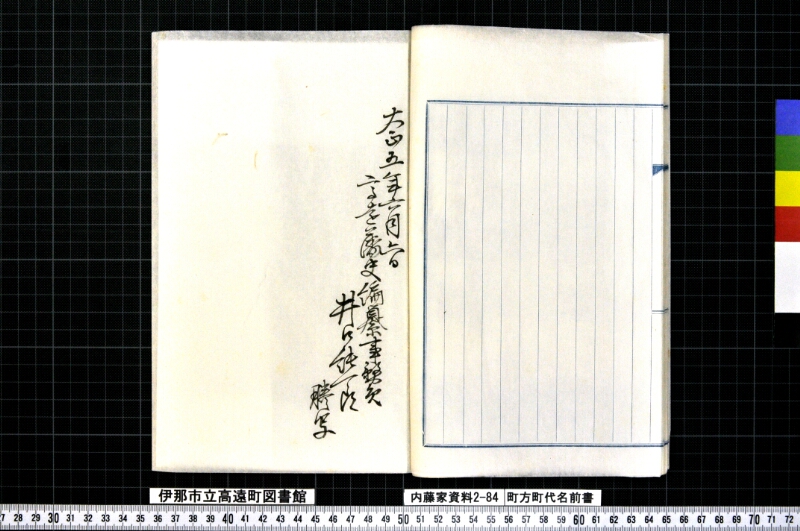 大正五年六月六日
高遠藩史編纂事務員
井口
謄写
伊那市立高遠町図書館
内藤家資料2-84 町方町代名前書
27 28 29 30 31 32 33 34 35 36 37 38 39 40 41 42 43 44 45 46 47 48 49 50 51 52 53 54 55 56 57 58 59 60 61 62 63 64 65 66 67 68 69 70 71 72